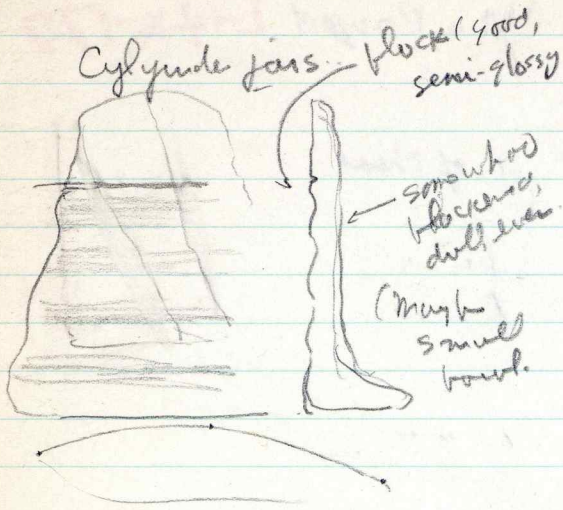 Cylynde jars
black (good,
semi-glossy
somewhat
blackened,
dull even.
(Maybe
small
bowl.